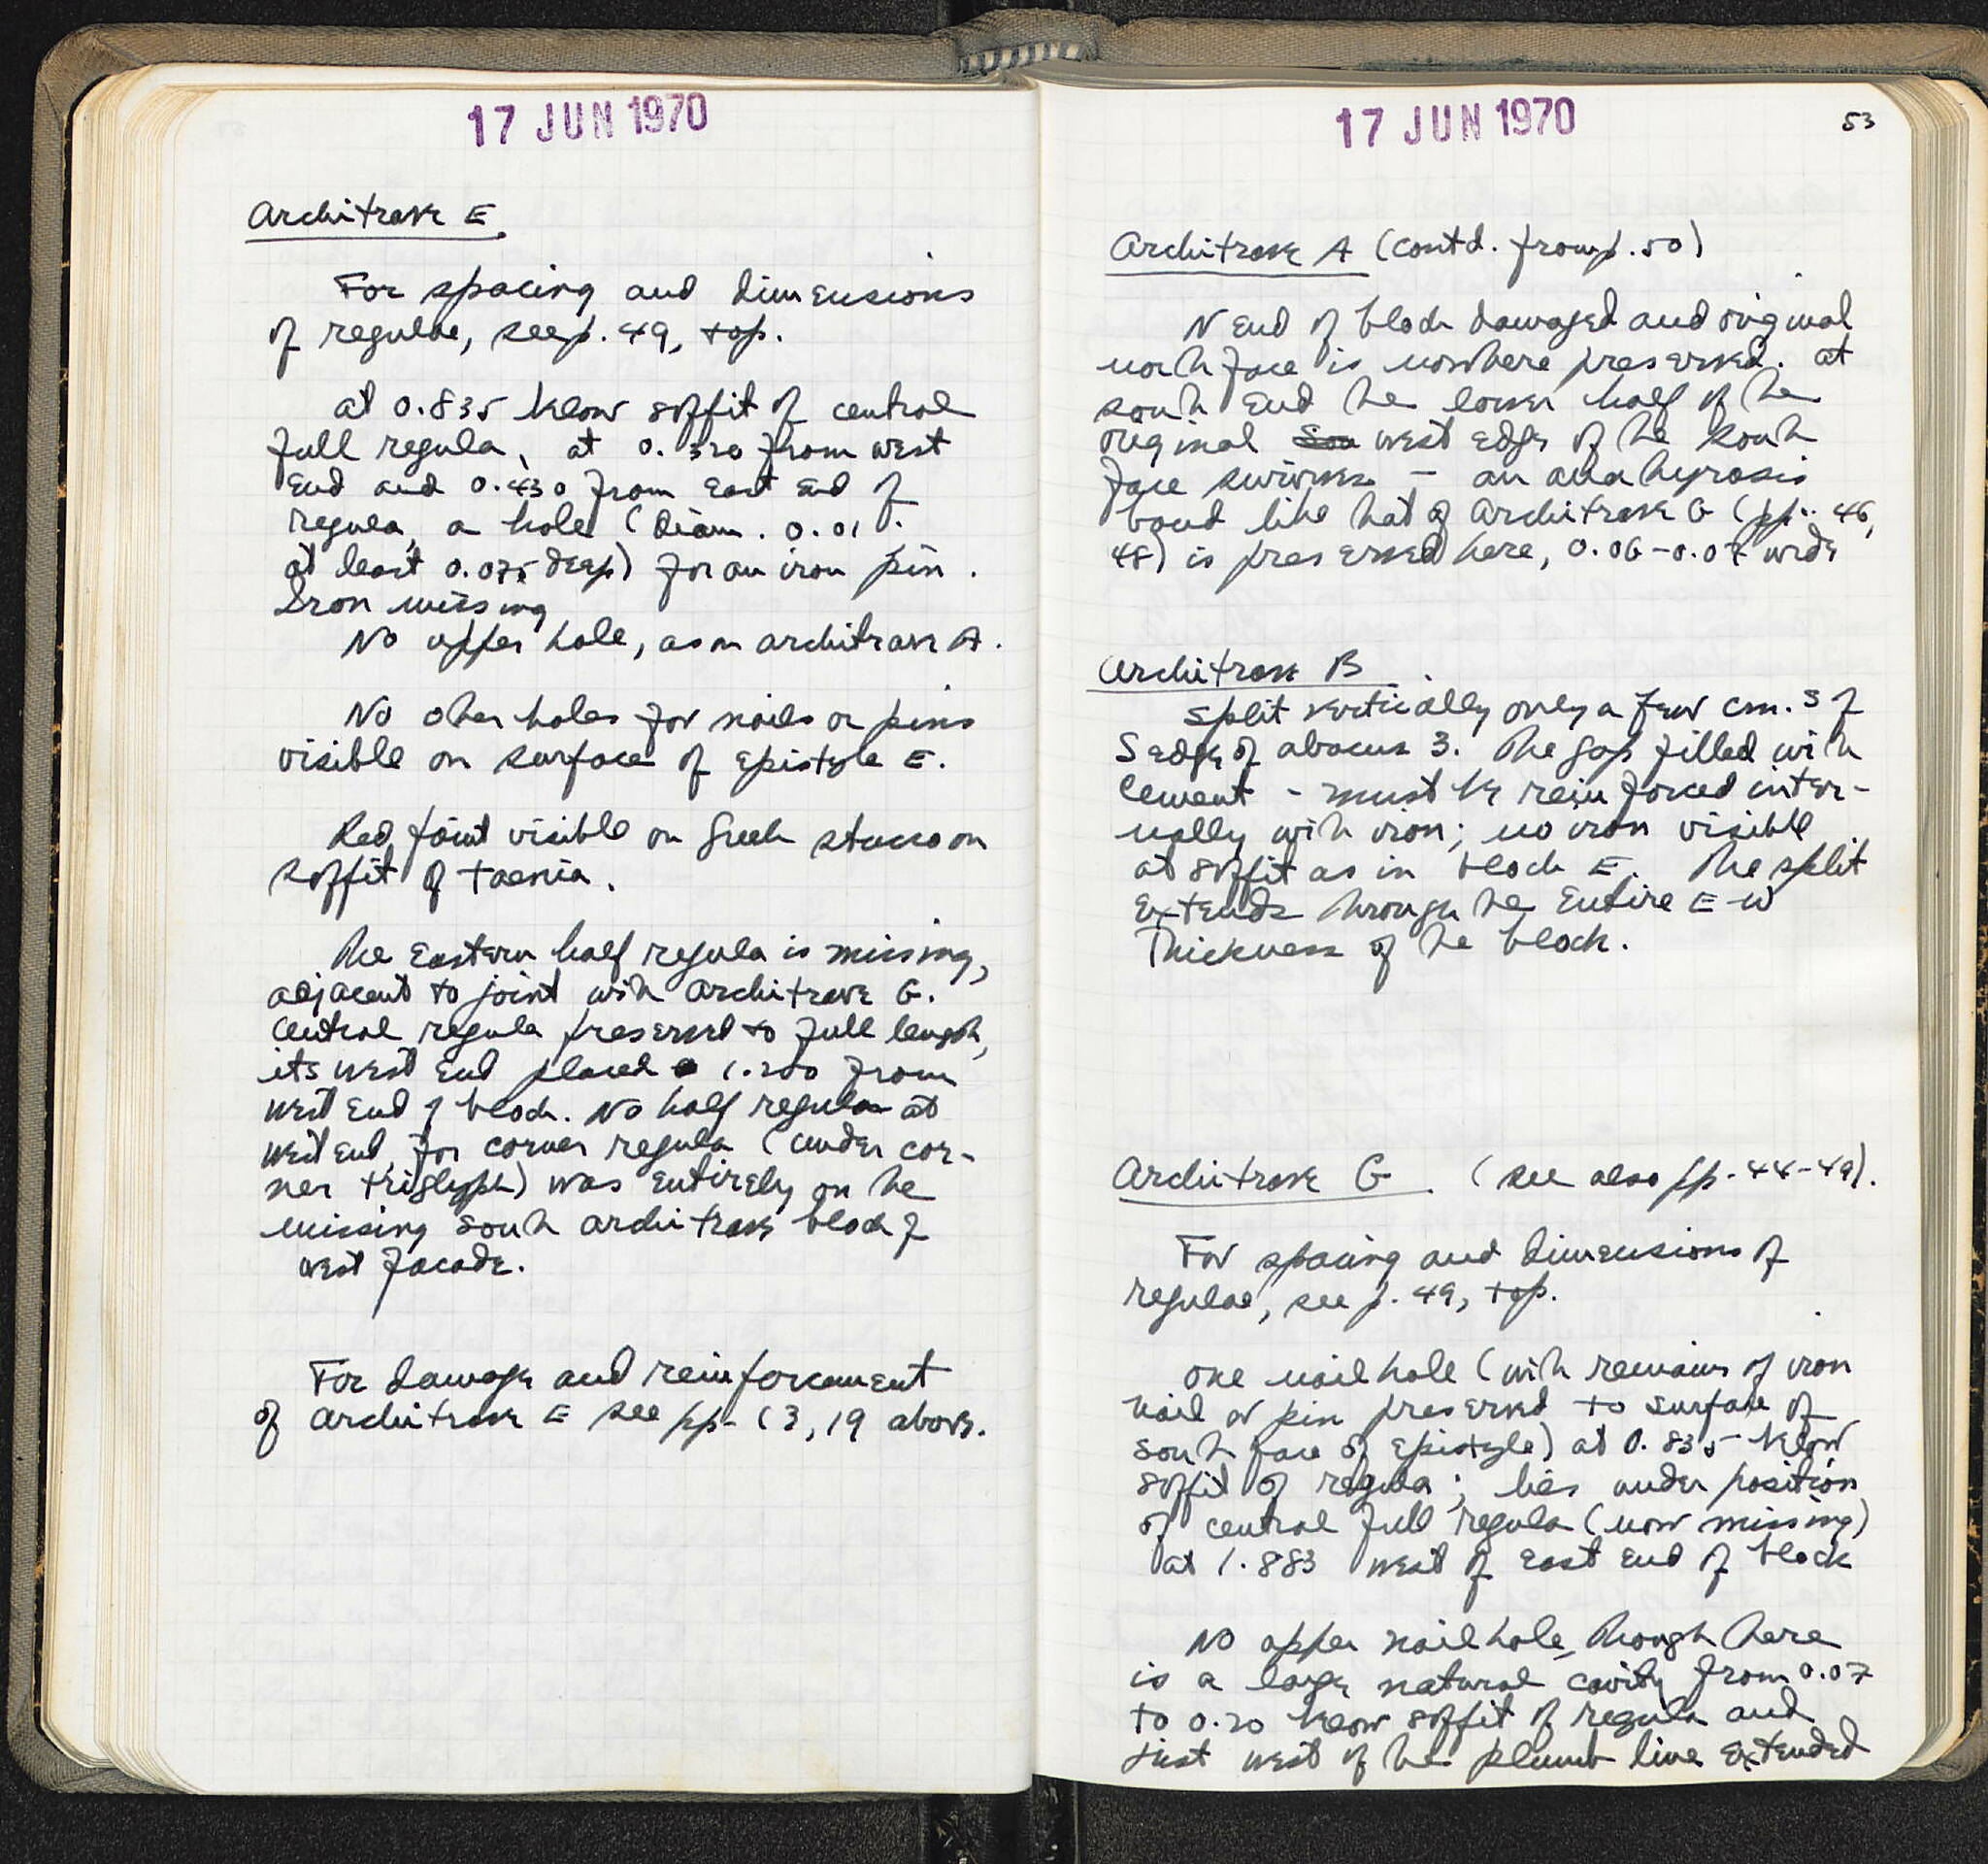 17 JUN 1970
Architrave E.
For spacing and dimensions
of regulae, see p. 49, top.
at 0.835 below soffit of central
full regula, at 0.320 from west
end and 0.430 from east end of
regula, a hole (diam. 0.01
at least 0.075 deep) for an iron pin.
Iron missing
No upper hole, as on architrave A.
No other holes for nails or pins
visible on surface of epistyle E.
Red paint visible on Greek stucco on
soffit of taenia.
The eastern half regula is missing,
adjacent to joint with architrave G.
Central regula preserved to full length,
its west end placed 1.200 from
west end of block. No half regula at
west end, for corner regula (under cor-
ner triglyph) was entirely on the
missing south architrave block of
west facade.
For damage and reinforcement
of architrave E see pp. 13, 19 above.
17 JUN 1970
53
Architrave A (contd. from p. 50)
N end of block damaged and original
north face is nowhere preserved. at
south end the lower half of the
original west edge of the south
face survives - an anathyrosis
band like that of architrave G (pp. 46,
48) is preserved here, 0.06-0.07 wide
Architrave B
Split vertically only a few cm. S of
S edge of abacus 3. The gap filled with
cement - must be reinforced inter-
nally with iron; no iron visible
at soffit as in block E. The split
extends through the entire E-W
Thickness of the block.
Architrave G. (see also pp. 44-49).
For spacing and dimensions of
regulae, see p. 49, top.
One nail hole (with remains of iron
nail or pin preserved to surface of
south face of epistyle) at 0.835 below
soffit of regula; lies under position
of central full regula (now missing)
at 1.883 west of east end of block
No upper nail hole, though there
is a large natural cavity from 0.07
to 0.20 below soffit of regula and
just west of the plumb line extended